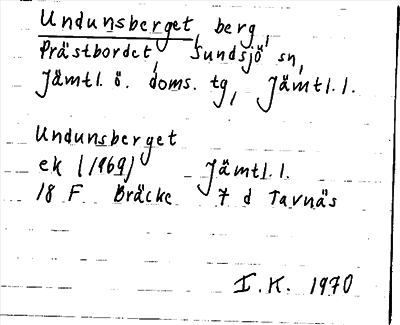 Undunsberget, berg,
Prästbordet, Sundsjö sn,
Jämtl. ö. doms. tg, Jämtl. l.
Undunsberget
ek (1969) Jämtl. l.
18 F Bräcke 7 d Tavnäs
I.K. 1970